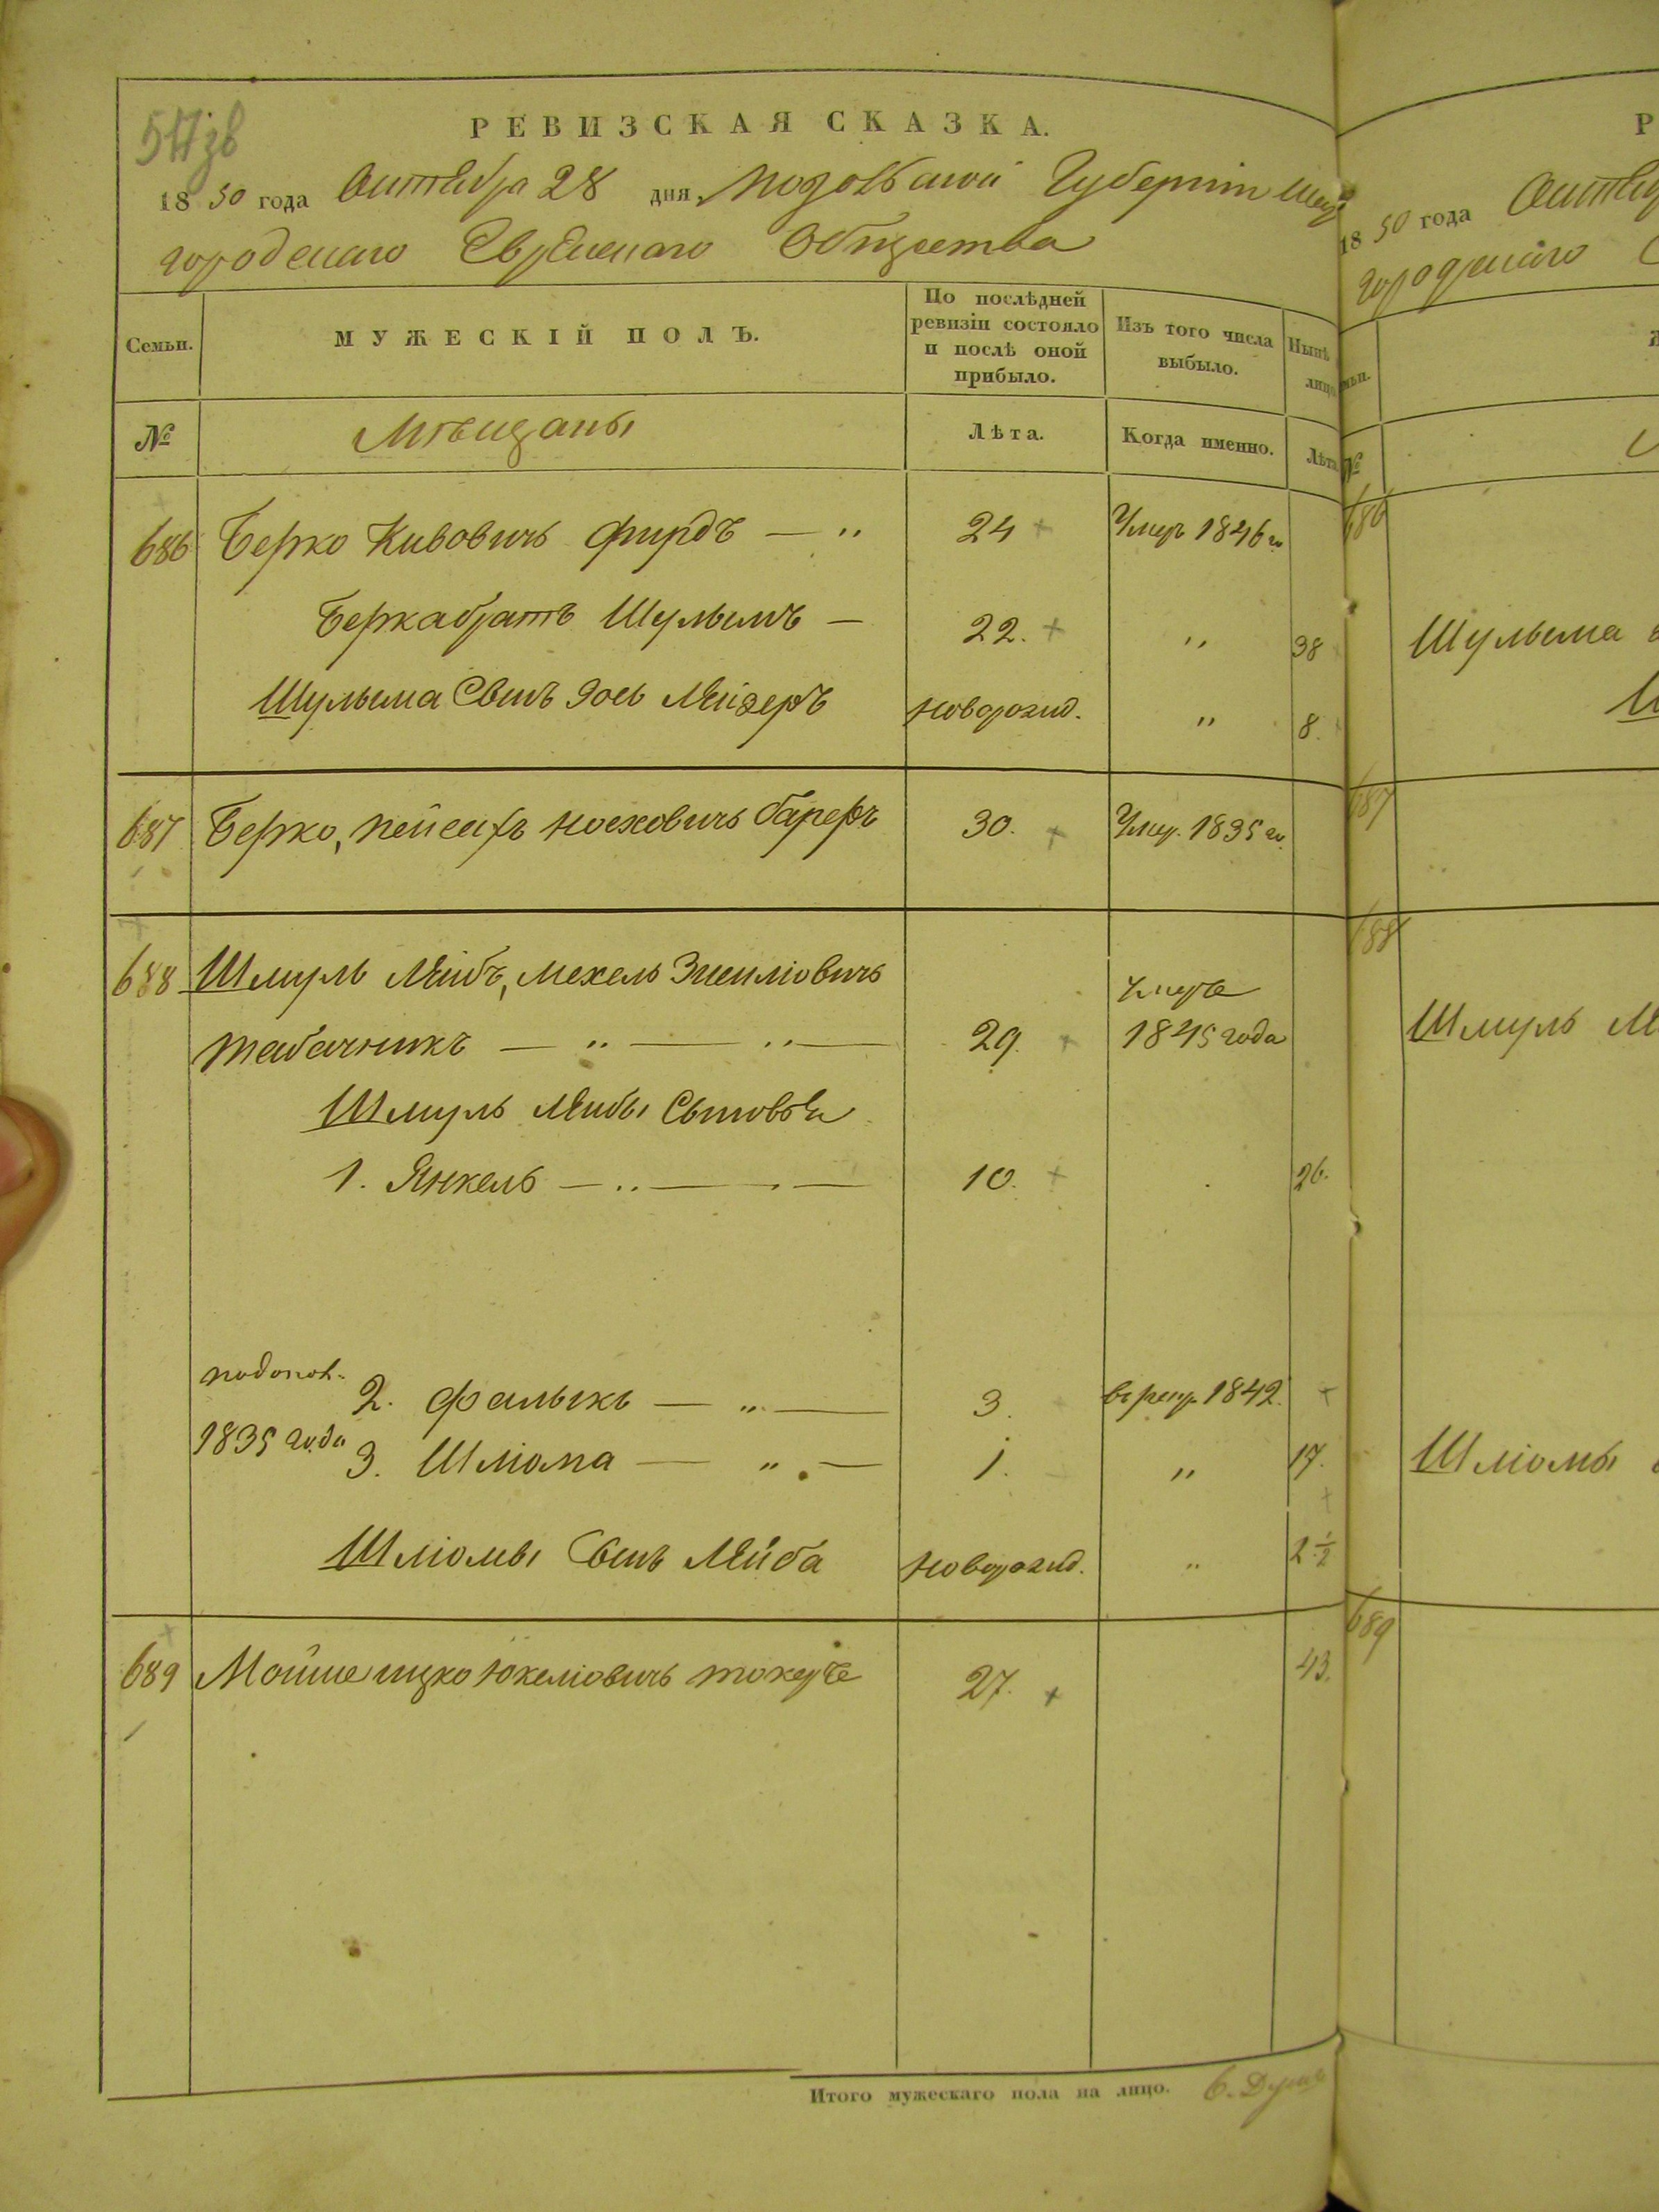 РЕВИЗСКАЯ СКАЗКА.
1850 года Октября 28 дня, Подольской Губернiи
городскаго Еврейскаго Общества
Семьи.
МУЖЕСКІЙ ПОЛЪ.
По послѣдней ревизіи состояло и послѣ оной прибыло.
Изъ того числа выбыло.
Нынѣ лицо
№
Мѣщаны
Лѣта.
Когда именно.
Лѣта
686 Берко Кивовичъ Фирдъ — „ 24 Умеръ 1846 го
Берка братъ Шулымъ — 22. „ 38
Шулыма Сынъ Іось Лейзеръ новорожд. „ 8.
687 Берко, ПейсахъНосховичъ 30. Умер. 1835 го
688 Шмуль Лейбъ, Мехель
Табачникъ — „ — „ — 29. Умеръ 1845 года
Шмуль Лейбы Сыновья
1. Янкель — „ — 10. 26.
подопол.
1835 года
2. Фалыкъ — „ — 3. в рекр. 1842.
3. Шліома — „ — 1. „ 17.
Шліомы Сынъ Лейба новорожд. „ 2 1/2
689 Мойше Ицко Юкеліовичъ Токеръ 27. 43.
Итого мужескаго пола на лицо. 6. Душъ
Р
1850 года
городскаго
№
686
Шулыма
687
688
Шмуль
Шліомы
689